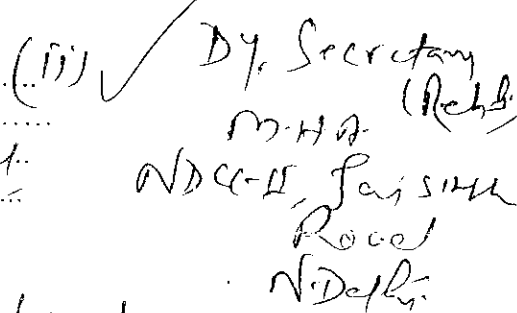 (ii) ✓ Dy. Secretary
(Rehb.)
M.H.A.
NDCC-II, Jai Singh
Road
N. Delhi.